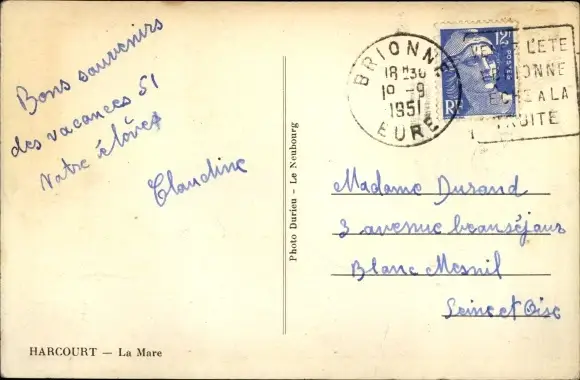 Bons souvenirs
des vacances 51
Votre élève
Claudine
HARCOURT — La Mare
Photo Durieu - Le Neubourg
BRIONNE
18 H30
1° -9
1951
EURE
12F
POSTES
RF
L'ETE
ONNE
A LA
TRUITE
Madame Durand
3 avenue beauséjour
Blanc Mesnil
Seine et Oise